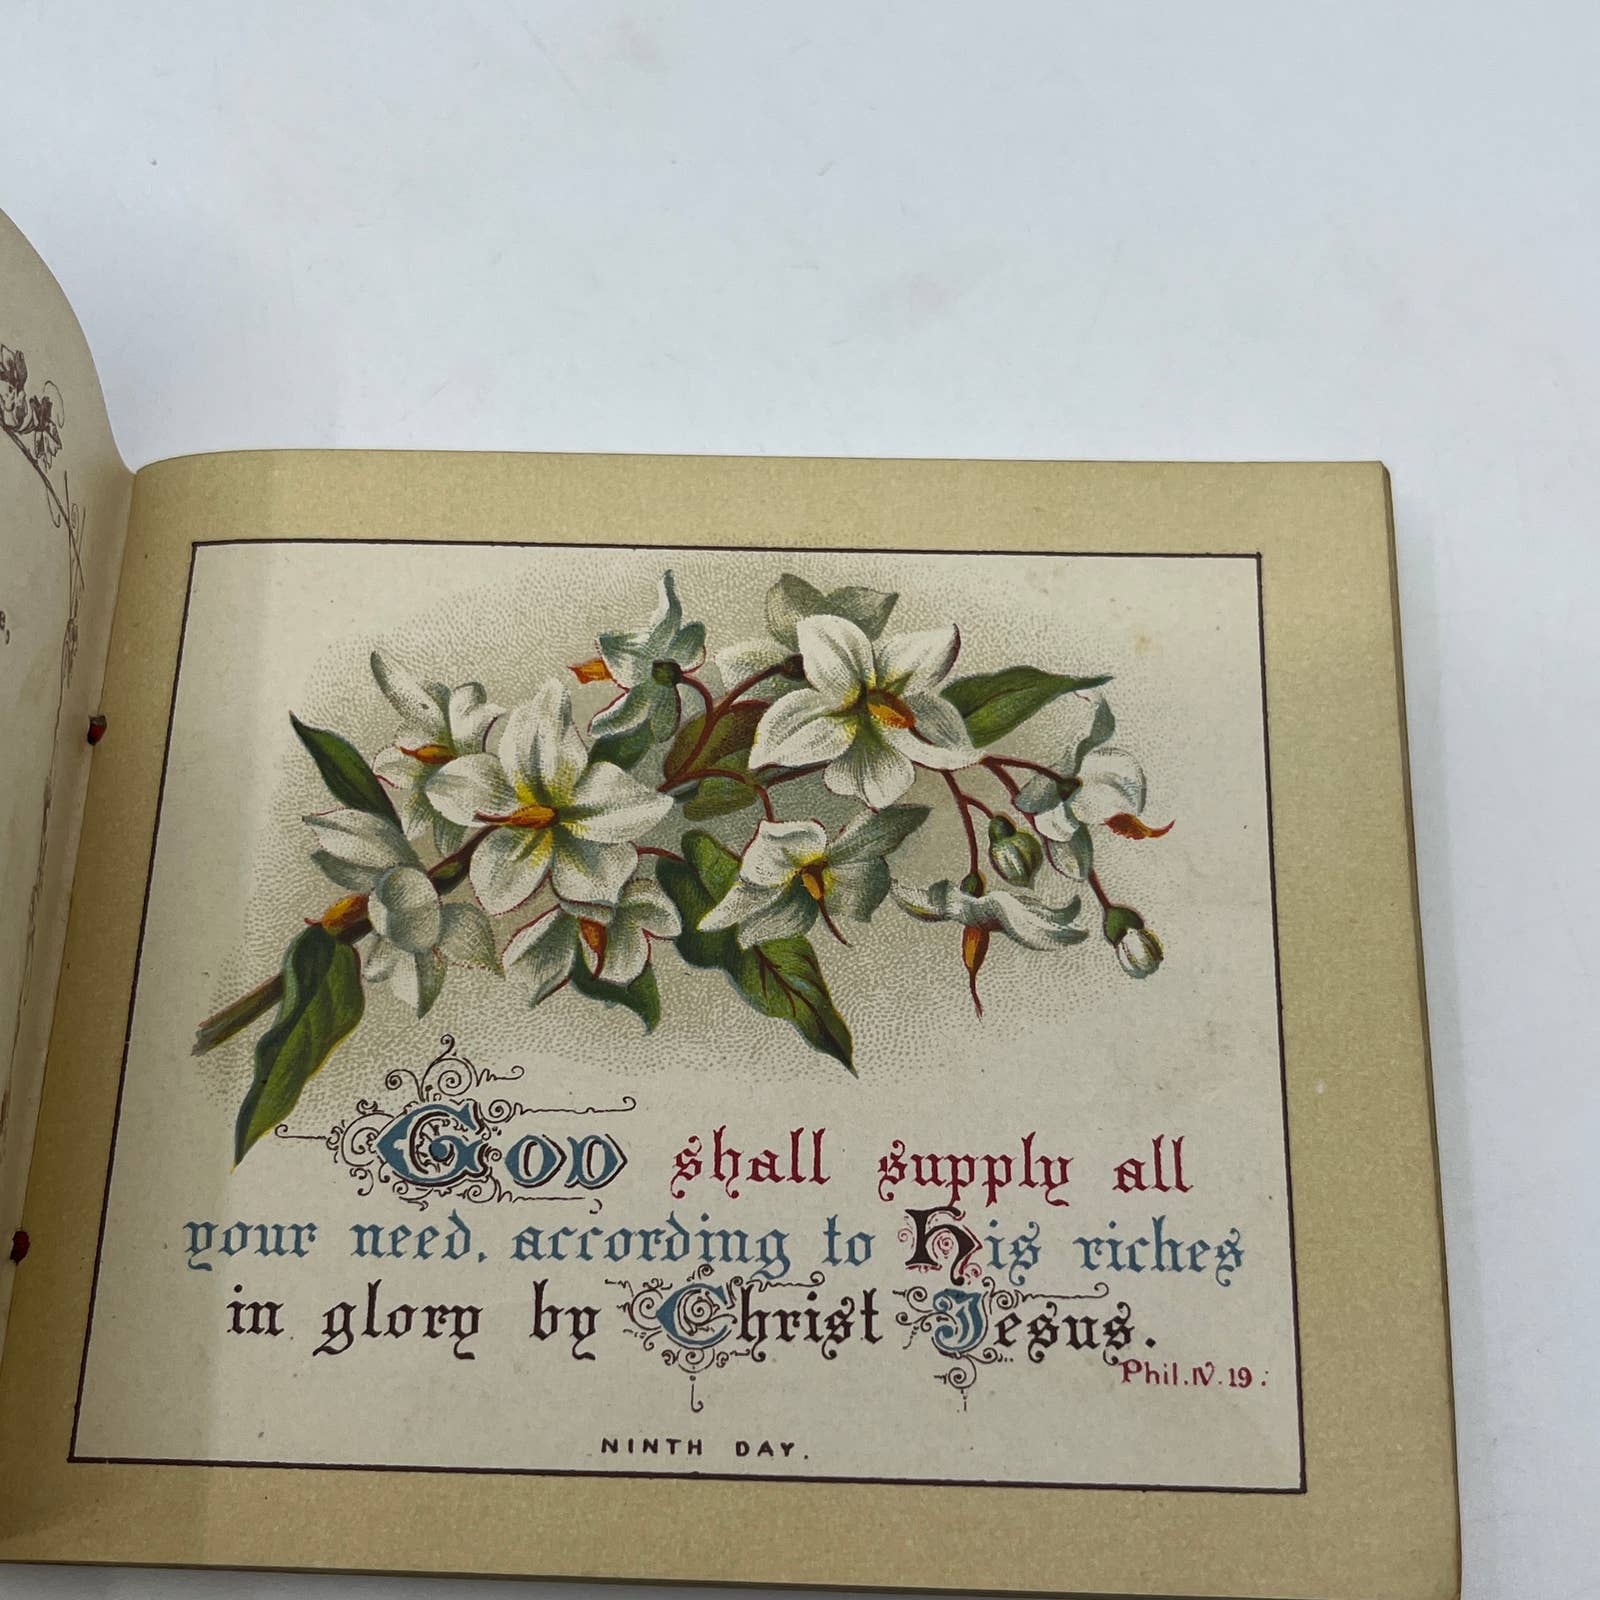 God shall supply all
your need, according to His riches
in glory by Christ Jesus.
Phil. IV. 19:
NINTH DAY.